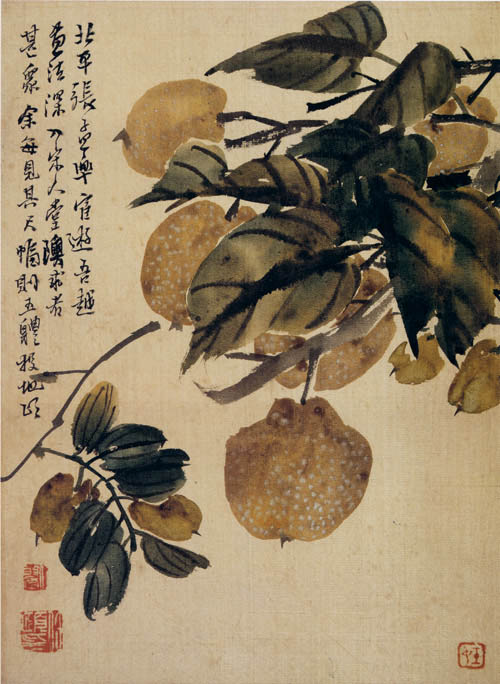 北平張孟皋宦遊吾越
畫法深入宋人堂隩求者
甚衆余每見其尺幅則五體投地